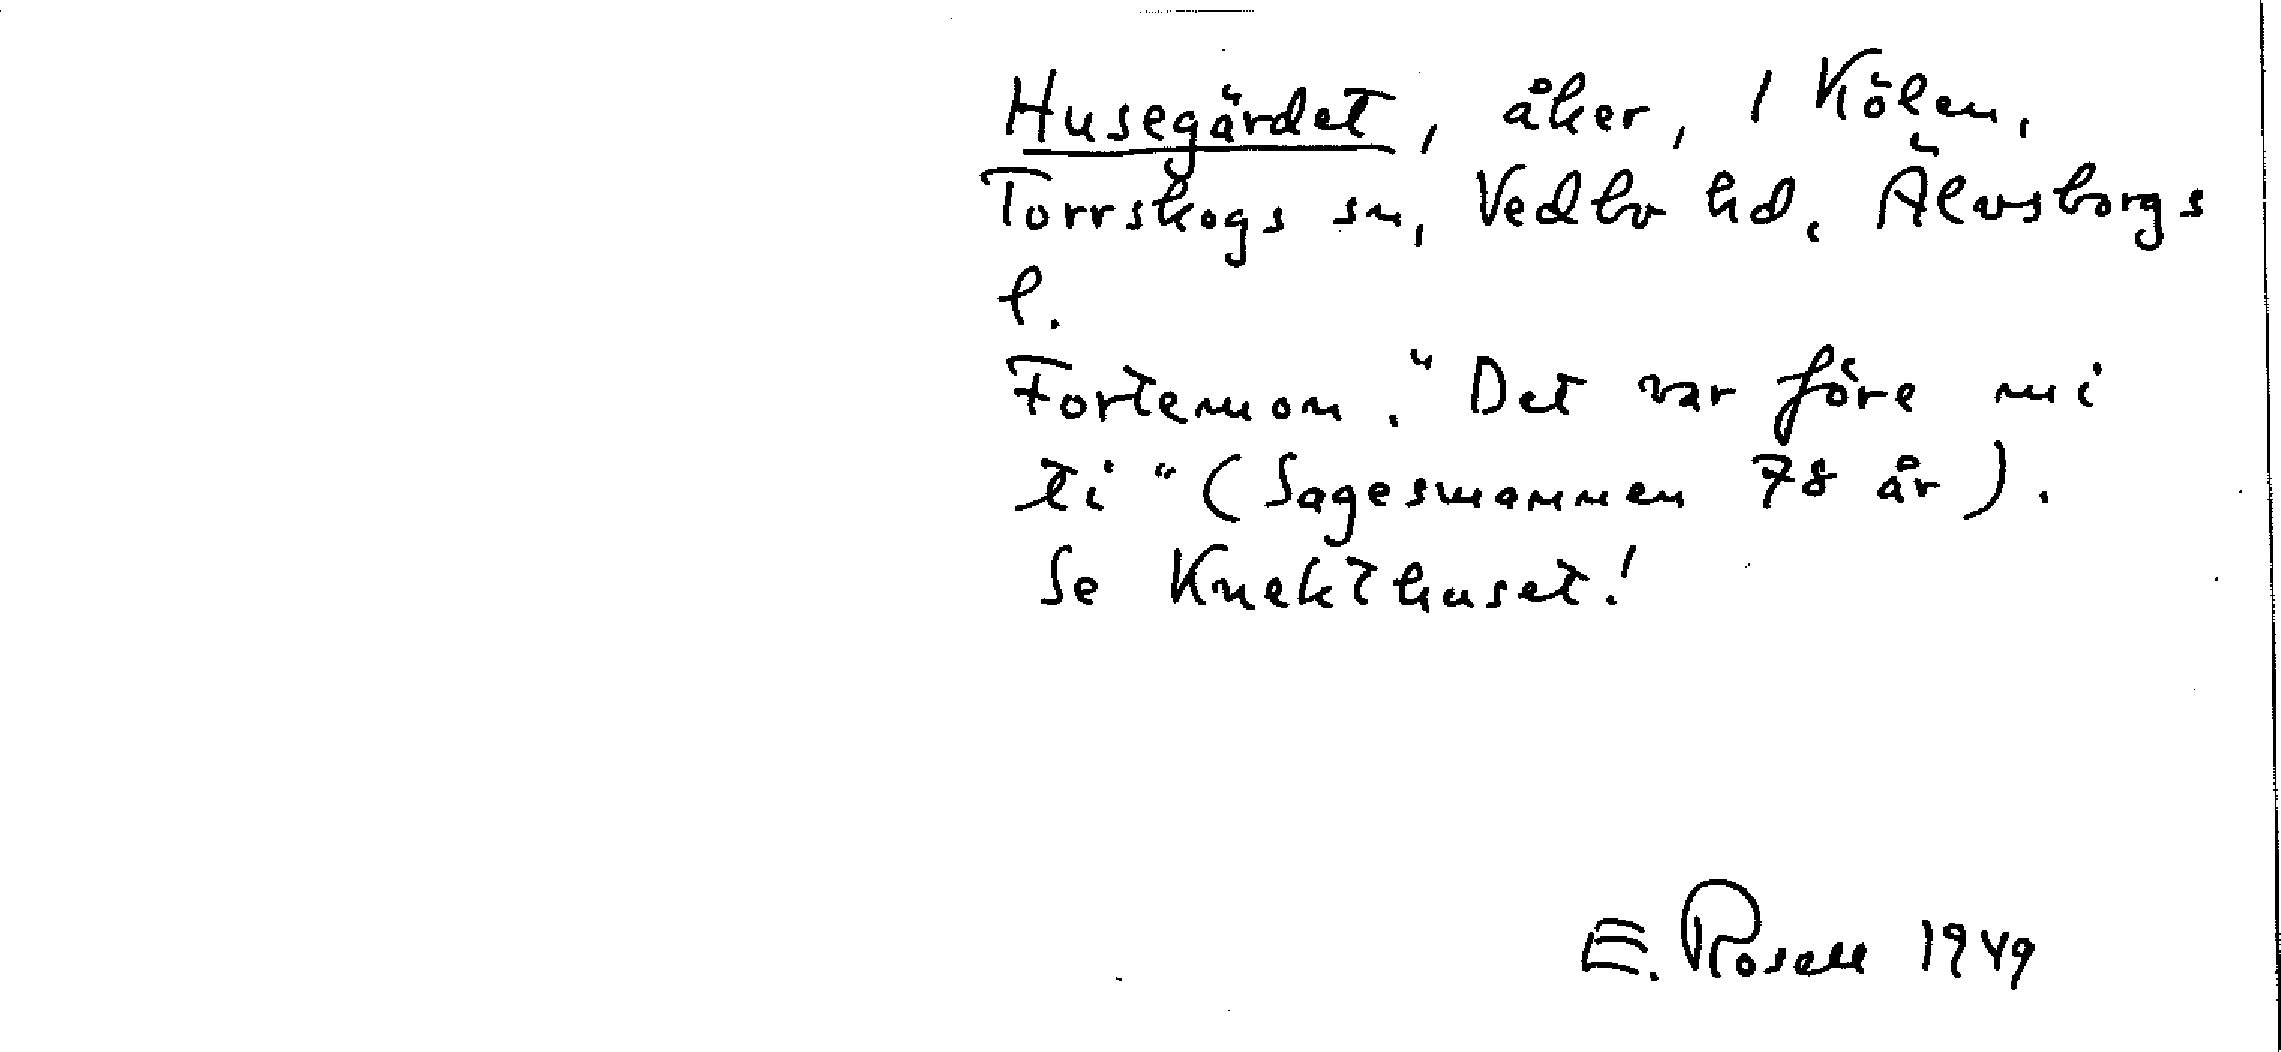 Husegärdet, åker, 1 Kölen,
Torrskogs sn, Vedbo hd, Älvsborgs
l.
Fornemon. "Det var före mi
ti" (Sagesmannen 78 år).
Se Knekthuset!
E. Rosell 1949